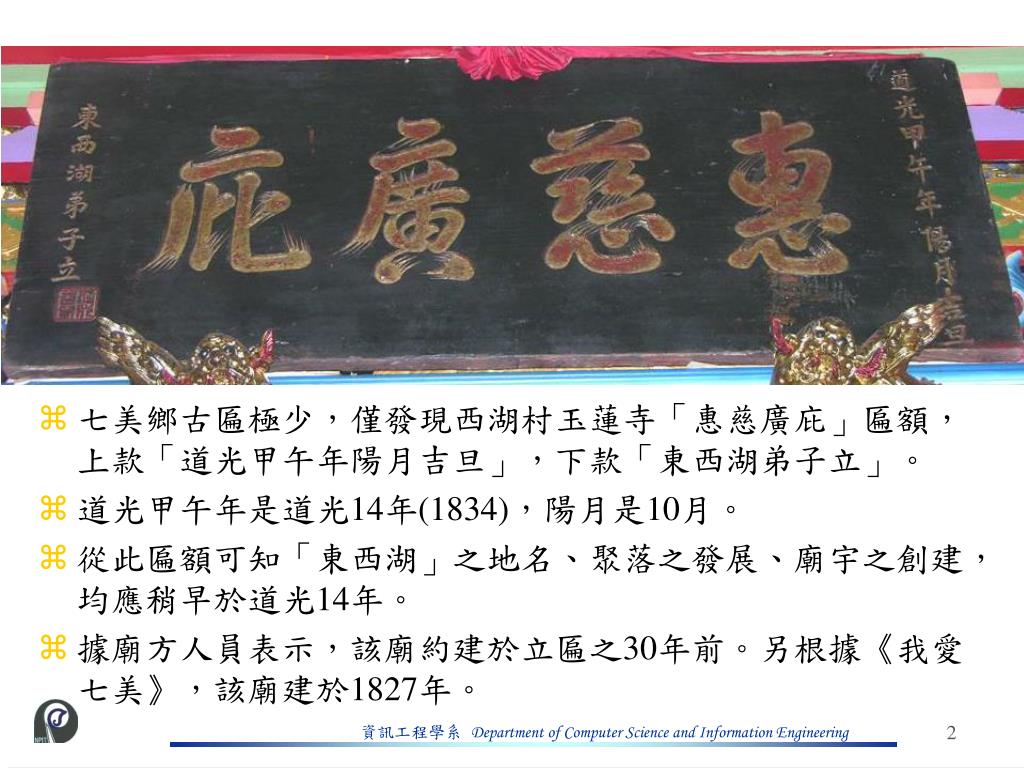 道光甲午年陽月吉旦
惠慈廣庇
東西湖弟子立
七美鄉古匾極少，僅發現西湖村玉蓮寺「惠慈廣庇」匾額，
上款「道光甲午年陽月吉旦」，下款「東西湖弟子立」。
道光甲午年是道光14年(1834)，陽月是10月。
從此匾額可知「東西湖」之地名、聚落之發展、廟宇之創建，
均應稍早於道光14年。
據廟方人員表示，該廟約建於立匾之30年前。另根據《我愛
七美》，該廟建於1827年。
資訊工程學系 Department of Computer Science and Information Engineering
2